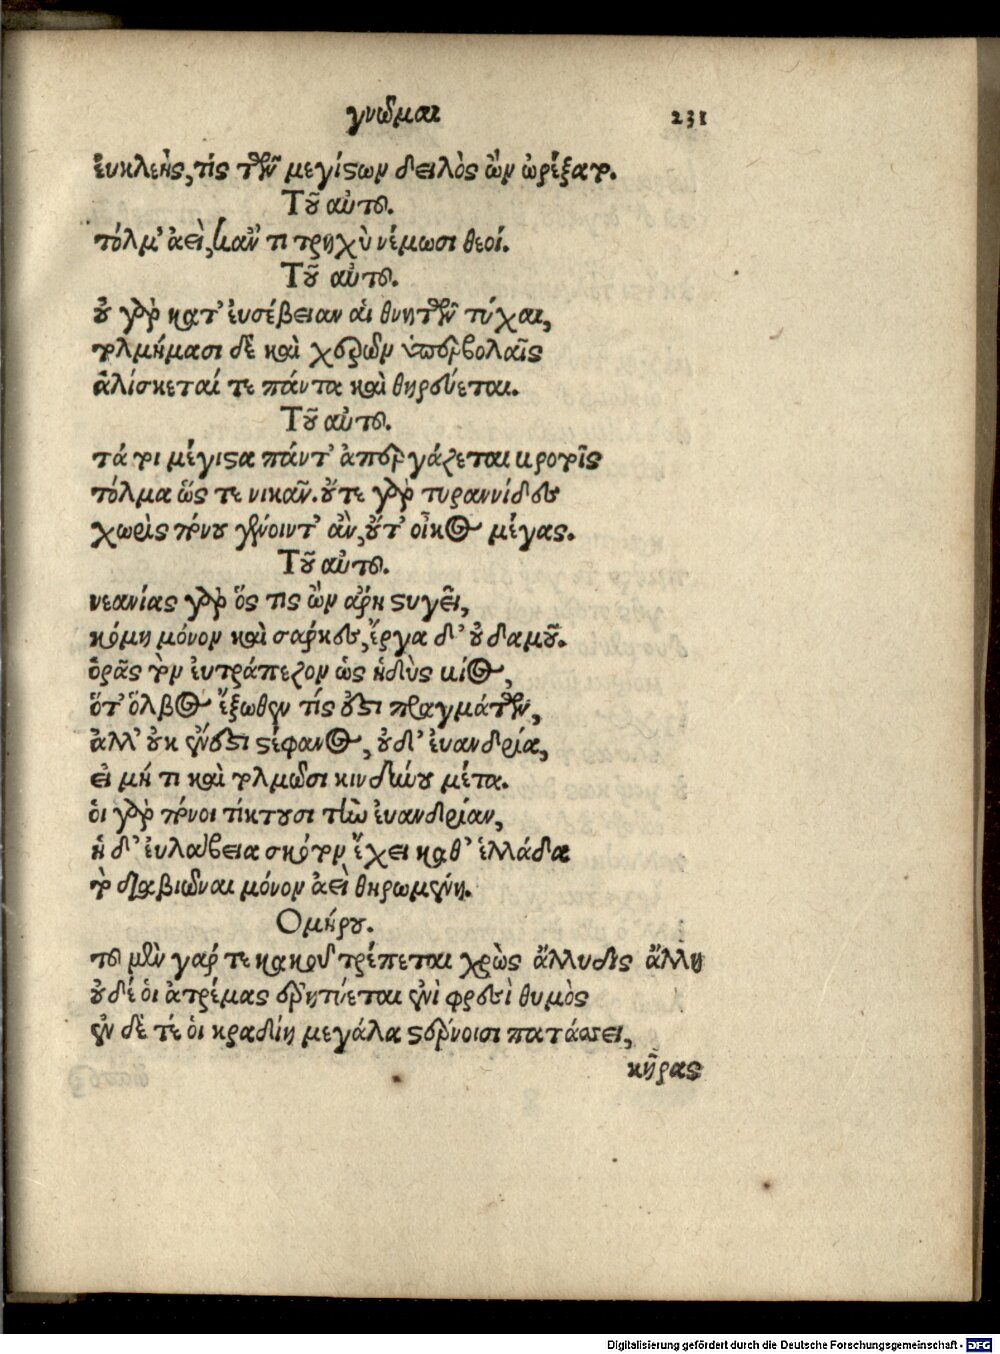 γνῶμαι 231
ἐυκλεὴς, τίς τῶν μεγίςων δειλὸς ὢν ὠρέξατο.
Τοῦ αὐτοῦ.
τόλμ' ἀεὶ, κἄν τι τρηχὺ νέμωσι θεοί.
Τοῦ αὐτοῦ.
οὐ γὰρ κατ' ἐυσέβειαν ἁι θνητῶν τύχαι,
τολμήμασι δὲ καὶ χερῶν ὑπερβολαῖς
ἁλίσκεταί τε πάντα καὶ θηρεύεται.
Τοῦ αὐτοῦ.
τά τοι μέγιςα πάντ' ἀπεργάζεται βροτοῖς
τόλμα ὥς τε νικᾶν. οὔτε γὰρ τυραννίδες
χωρὶς πόνου γένοιντ' ἂν, οὔτ' οἶκος μέγας.
Τοῦ αὐτοῦ.
νεανίας γὰρ ὅς τις ὢν ἄρη ςυγεῖ,
κόμη μόνον καὶ σάρκες, ἔργα δ' οὐδαμοῦ.
ὁρᾶς τὸν ἐυτράπεζον ὡς ἡδὺς βίος,
ὅτ' ὄλβος ἔξωθεν τίς ἐςι πραγμάτων,
ἀλλ' οὐκ ἔνεςι ςέφανος, οὐδ' ἐυανδρία,
εἰ μή τι καὶ τολμῶσι κινδύνου μέτα.
ὁι γὰρ πόνοι τίκτουσι τὴν ἐυανδρίαν,
ἡ δ' ἐυλάβεια σκότον ἔχει καθ' ἑλλάδα
τὸ διαβιῶναι μόνον ἀεὶ θηρωμένη.
Ομήρου.
τοῦ μὲν γάρ τε κακοῦ τρέπεται χρὼς ἄλλυδις ἄλλη
οὐδέ ὁι ἀτρέμας ἐρητύεται ἐνὶ φρεσὶ θυμὸς
ἐν δὲ τέ ὁι κραδίη μεγάλα ςέρνοισι πατάσσει,
κῆρας
Digitalisierung gefördert durch die Deutsche Forschungsgemeinschaft - DFG